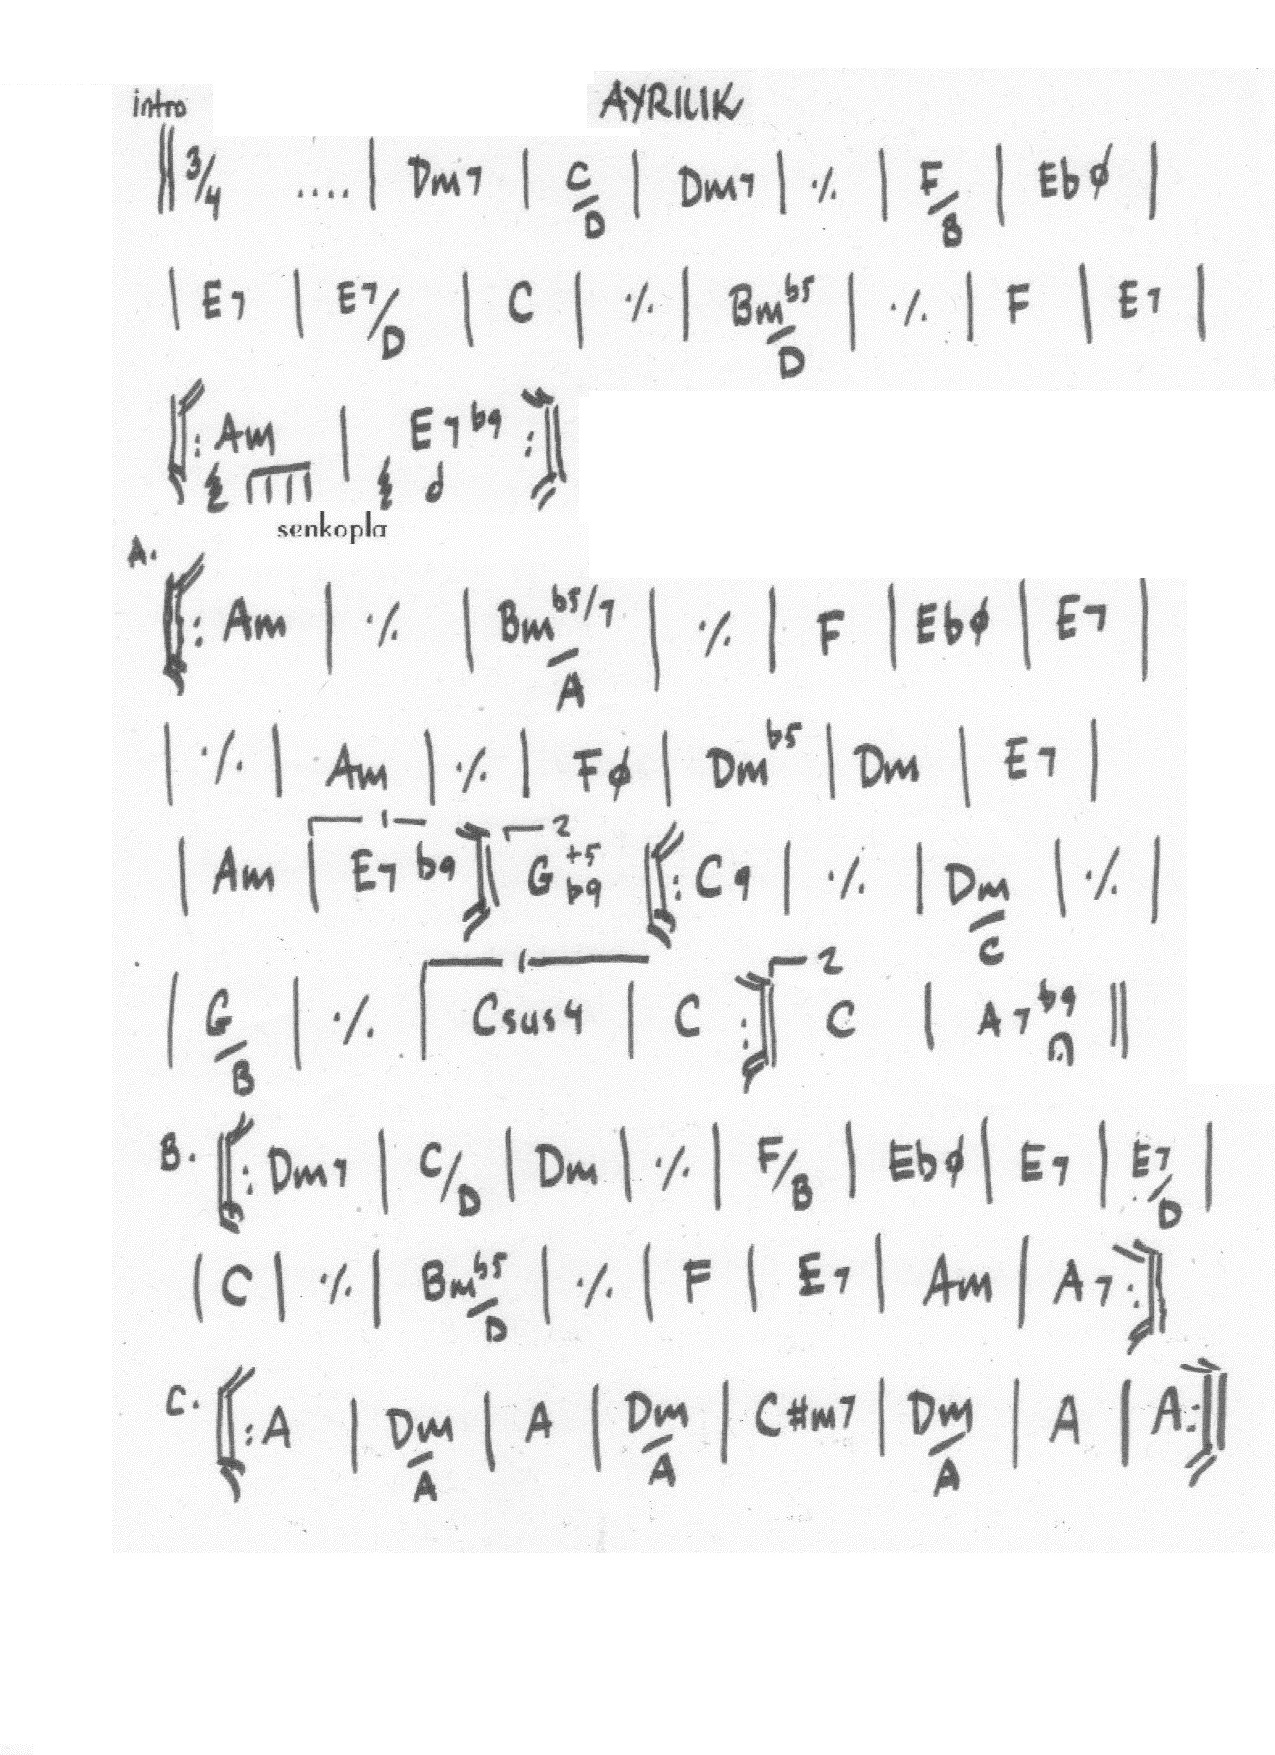 intro AYRILIK
3/4 .... | Dm7 | C/D | Dm7 | ٪ | F/B | Ebø |
| E7 | E7/D | C | ٪ | Bmb5/D | ٪ | F | E7 |
‖: Am | E7b9 :‖
senkopla
A.
‖: Am | ٪ | Bmb5/7/A | ٪ | F | Ebø | E7 |
| ٪ | Am | ٪ | Fø | Dmb5 | Dm | E7 |
| Am | 1 E7b9 ‖ 2 G+5b9 ‖: C9 | ٪ | Dm/C | ٪ |
| G/B | ٪ | 1 Csus4 | C :‖ 2 C | A7b9 ‖
B. ‖: Dm7 | C/D | Dm | ٪ | F/B | Ebø | E7 | E7/D |
| C | ٪ | Bmb5/D | ٪ | F | E7 | Am | A7 :‖
C. ‖: A | Dm/A | A | Dm/A | C#m7 | Dm/A | A | A :‖